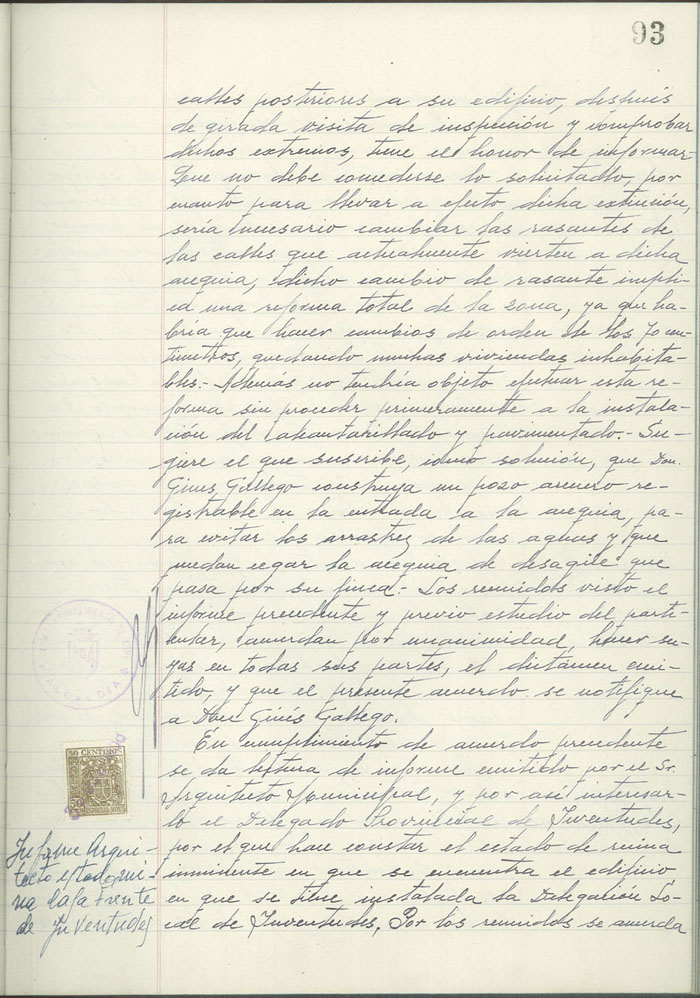 93
calles posteriores a su edificio, después
de girada visita de inspección y comprobar
dichos extremos, tiene el honor de informar.
Que no debe concederse lo solicitado, por
cuanto para llevar a efecto dicha extensión,
sería necesario cambiar las rasantes de
las calles que actualmente vierten a dicha
acequia, dicho cambio de rasante impli-
ca una reforma total de la zona, ya que ha-
bría que hacer cambios de orden de los 70 cen-
tímetros, quedando muchas viviendas inhabita-
bles.- Además no tendría objeto efectuar esta re-
forma sin proceder primeramente a la instala-
ción del alcantarillado y pavimentado.- Su-
giere el que suscribe, como solución, que Don.
Ginés Gallego construya un pozo arenero re-
gistrable en la entrada a la acequia, pa-
ra evitar los arrastrez de las aguas y que
puedan cegar la acequia de desagüe que
pasa por su finca.- Los reunidos visto el
informe precedente y previo estudio del parti-
cular, acuerdan por unanimidad, hacer su-
yas en todas sus partes, el dictámen emi-
tido, y que el presente acuerdo se notifique
a Don Ginés Gallego.
En cumplimiento de acuerdo precedente
se da lectura de informe emitido por el Sr.
Arquitecto Municipal, y por así interesar-
lo el Delegado Provincial de Juventudes,
por el que hace constar el estado de ruina
inminente en que se encuentra el edificio
en que se tiene instalada la Delegación Lo-
cal de Juventudes, Por los reunidos se acuerda
ALCALDIA
50 CENTIMOS
50
Informe Arqui-
tecto estado rui-
na Casa Frente
de Juventudes